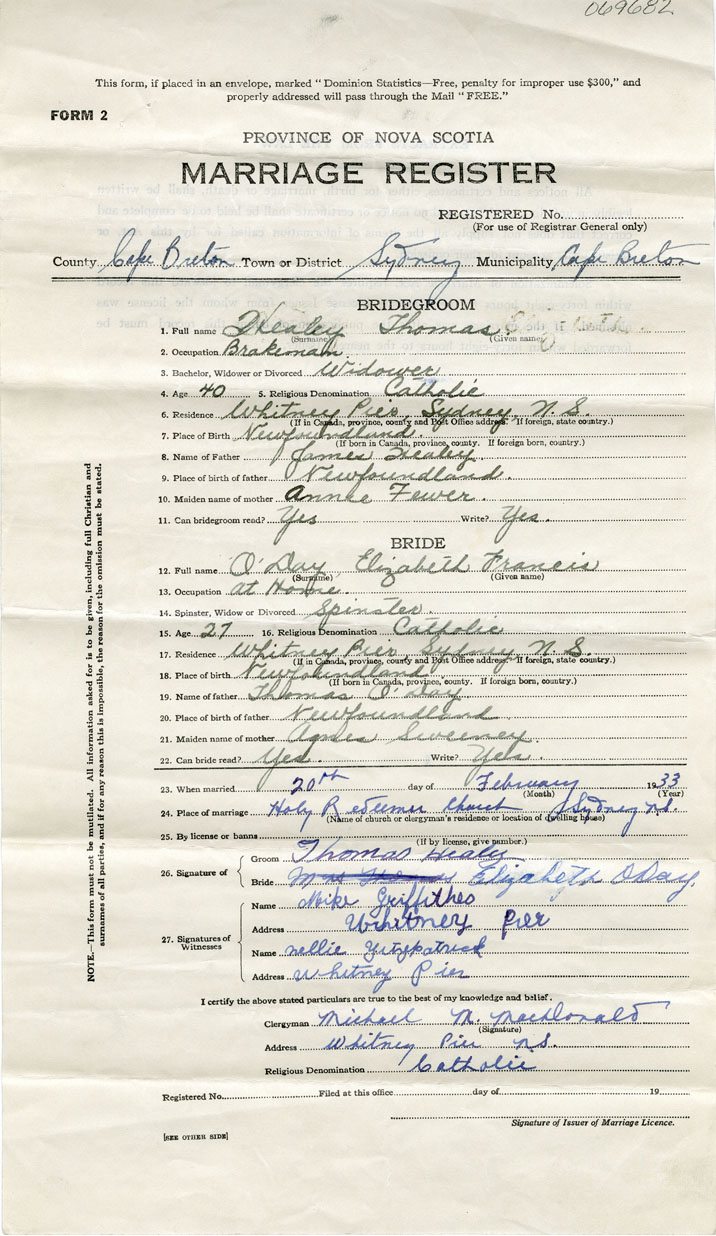 069682
This form, if placed in an envelope, marked "Dominion Statistics—Free, penalty for improper use $300," and
properly addressed will pass through the Mail "FREE."
FORM 2
PROVINCE OF NOVA SCOTIA
MARRIAGE REGISTER
REGISTERED No.
(For use of Registrar General only)
County Cape Breton Town or District Sydney Municipality Cape Breton
BRIDEGROOM
1. Full name Healey Thomas
(Surname) (Given name)
2. Occupation Brakeman
3. Bachelor, Widower or Divorced Widower
4. Age 40 5. Religious Denomination Catholic
6. Residence Whitney Pier, Sydney, N. S.
(If in Canada, province, county and Post Office address. If foreign, state country.)
7. Place of Birth Newfoundland.
(If born in Canada, province, county. If foreign born, country.)
8. Name of Father James Healey.
9. Place of birth of father Newfoundland.
10. Maiden name of mother Annie Fewer.
11. Can bridegroom read? Yes Write? Yes.
BRIDE
12. Full name O'Day, Elizabeth Francis
(Surname) (Given name)
13. Occupation at Home.
14. Spinster, Widow or Divorced Spinster.
15. Age 27 16. Religious Denomination Catholic
17. Residence Whitney Pier Sydney N. S.
(If in Canada, province, county and Post Office address. If foreign, state country.)
18. Place of birth Newfoundland
(If born in Canada, province, county. If foreign born, country.)
19. Name of father Thomas O'Day
20. Place of birth of father Newfoundland
21. Maiden name of mother Agnes Sweeney.
22. Can bride read? Yes. Write? Yes.
23. When married 20th day of February 1933
(Month) (Year)
24. Place of marriage Holy Redeemer Church Sydney N.S.
(Name of church or clergyman's residence or location of dwelling house)
25. By license or banns
(If by license, give number.)
26. Signature of
Groom Thomas Healey
Bride Mrs Thomas Elizabeth ODay.
27. Signatures of Witnesses
Name Mike Griffithes
Address Whitney Pier
Name nellie Fitzpatrick
Address Whitney Pier
I certify the above stated particulars are true to the best of my knowledge and belief.
Clergyman Michael M. MacDonald
(Signature)
Address Whitney Pier N.S.
Religious Denomination Catholic
Registered No. Filed at this office day of 19
Signature of Issuer of Marriage Licence.
[SEE OTHER SIDE]
NOTE.—This form must not be mutilated. All information asked for is to be given, including full Christian and
surnames of all parties, and if for any reason this is impossible, the reason for the omission must be stated.